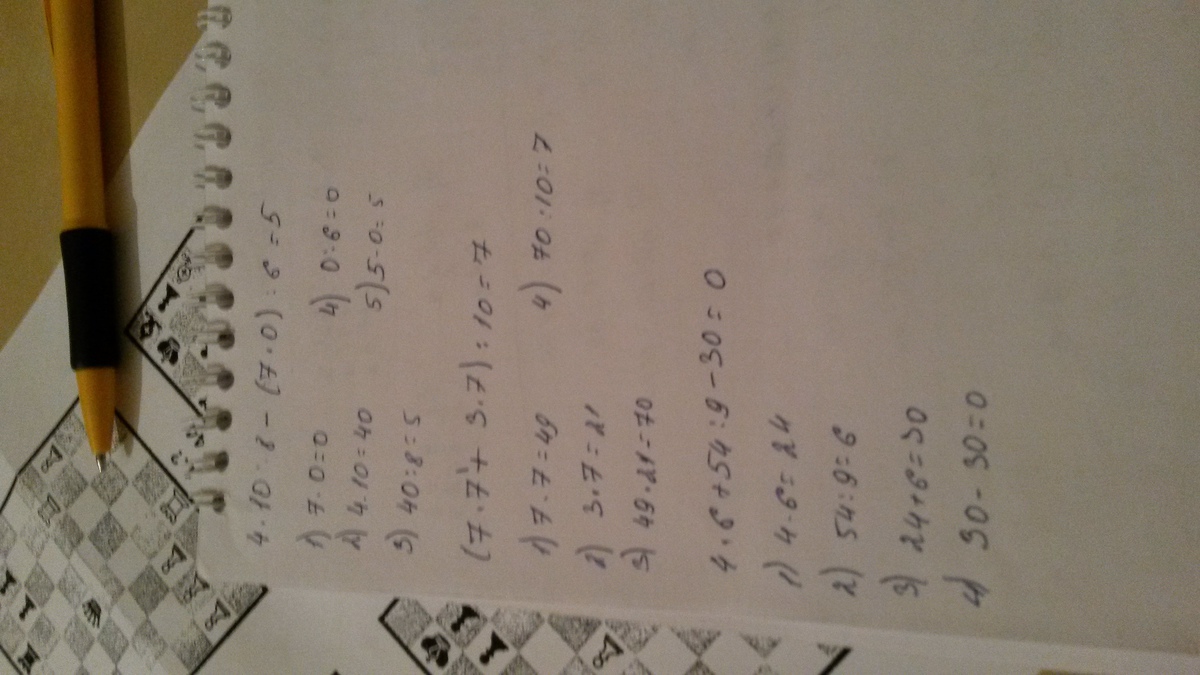 4·10:8-(7·0):6=5
1) 7·0=0
2) 4·10=40
3) 40:8=5
4) 0:6=0
5) 5-0=5
(7·7+3·7):10=7
1) 7·7=49
2) 3·7=21
3) 49·21=70
4) 70:10=7
4·6+54:9-30=0
1) 4·6=24
2) 54:9=6
3) 24+6=30
4) 30-30=0